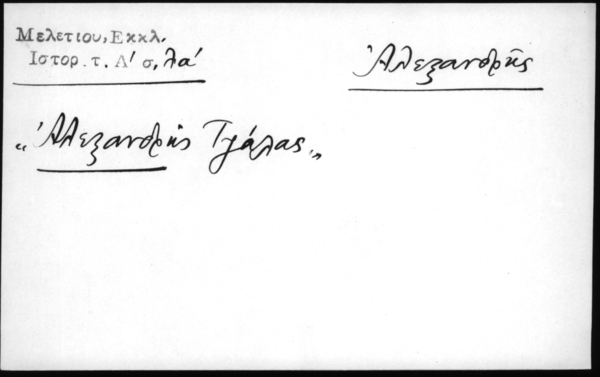 Μελετιου, Εκκλ.
Ιστορ. τ. Α' σ. λα'
Ἀλεξανδρῆς
„Ἀλεξανδρῆς Τζάλας„